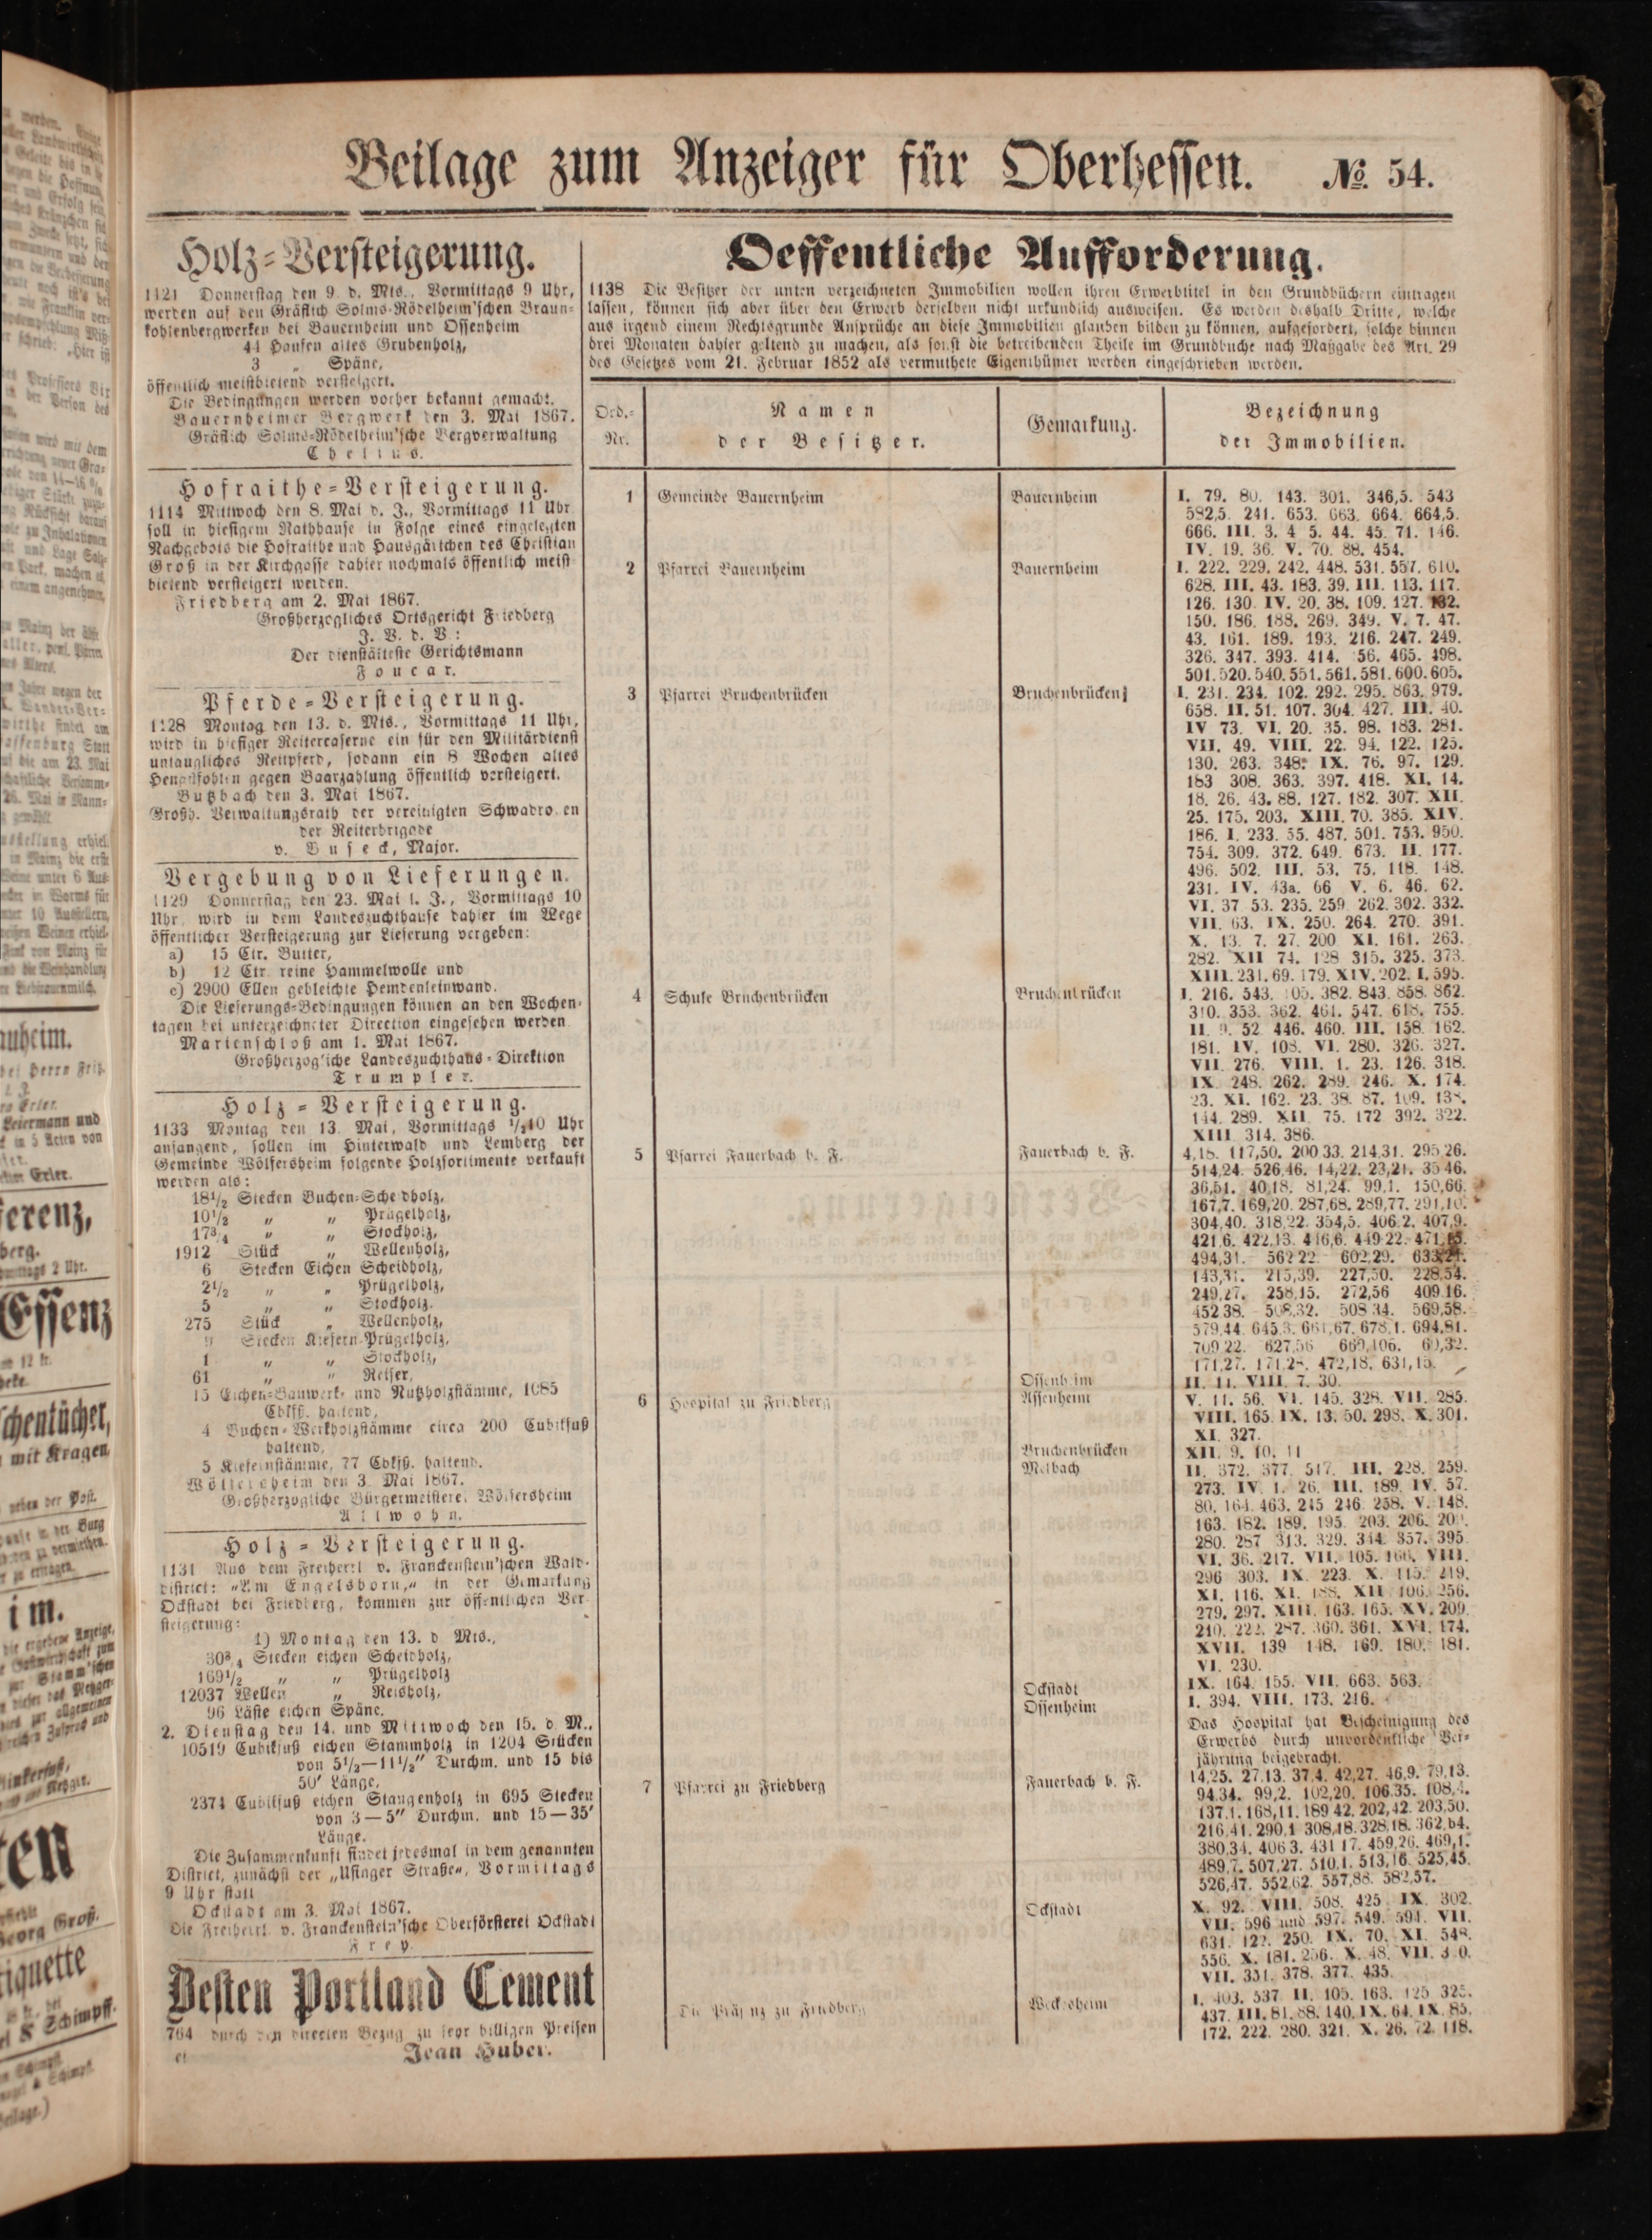 Beilage zum Anzeiger für Oberhessen. № 54.
Holz-Versteigerung.
1121 Donnerstag den 9. d. Mts., Vormittags 9 Uhr,
werden auf den Gräflich Solms-Rödelheim'schen Braun-
kohlenbergwerken bei Bauernheim und Ossenheim
44 Haufen altes Grubenholz,
3 „ Späne,
öffentlich meistbietend versteigert.
Die Bedingungen werden vorher bekannt gemacht.
Bauernheimer Bergwerk den 3. Mai 1867.
Gräflich Solms-Rödelheim'sche Bergverwaltung
Chelius.
Hofraithe-Versteigerung.
1114 Mittwoch den 8. Mai d. J., Vormittags 11 Uhr
soll in hiesigem Rathhause in Folge eines eingelegten
Nachgebots die Hofraithe und Hausgärtchen des Christian
Groß in der Kirchgasse dahier nochmals öffentlich meist-
bietend versteigert werden.
Friedberg am 2. Mai 1867.
Großherzogliches Ortsgericht Friedberg
J. V. d. V:
Der dienstälteste Gerichtsmann
Foucar.
Pferde-Versteigerung.
1128 Montag den 13. d. Mts., Vormittags 11 Uhr,
wird in hiesiger Reitercaserne ein für den Militärdienst
untaugliches Reitpferd, sodann ein 8 Wochen altes
Hengstfohlen gegen Baarzahlung öffentlich versteigert.
Butzbach den 3. Mai 1867.
Großh. Verwaltungsrath der vereinigten Schwadronen
der Reiterbrigade
v. Buseck, Major.
Vergebung von Lieferungen.
1129 Donnerstag den 23. Mai l. J., Vormittags 10
Uhr, wird in dem Landeszuchthause dahier im Wege
öffentlicher Versteigerung zur Lieferung vergeben:
a) 15 Ctr. Butter,
b) 12 Ctr. reine Hammelwolle und
c) 2900 Ellen gebleichte Hemdenleinwand.
Die Lieferungs-Bedingungen können an den Wochen-
tagen bei unterzeichneter Direction eingesehen werden
Marienschloß am 1. Mai 1867.
Großherzogliche Landeszuchthaus-Direktion
Trumpler.
Holz-Versteigerung.
1133 Montag den 13. Mai, Vormittags ½10 Uhr
anfangend, sollen im Hinterwald und Lemberg der
Gemeinde Wölfersheim folgende Holzsortimente verkauft
werden als:
18½ Stecken Buchen-Scheidholz,
10½ „ „ Prügelholz,
17¾ „ „ Stockholz,
1912 Stück „ Wellenholz,
6 Stecken Eichen Scheidholz,
2½ „ „ Prügelholz,
5 „ „ Stockholz.
275 Stück „ Wellenholz,
9 Stecken Kiefern-Prügelholz,
1 „ „ Stockholz,
61 „ „ Reiser,
15 Eichen-Bauwerk- und Nutzholzstämme, 1085
Cbkfß. haltend,
4 Buchen-Werkholzstämme circa 200 Cubikfuß
haltend,
5 Kiefernstämme, 77 Cbkfß. haltend.
Wölfersheim den 3. Mai 1867.
Großherzogliche Bürgermeisterei Wölfersheim
Allwohn.
Holz-Versteigerung.
1131 Aus dem Freiherrl v. Franckenstein'schen Wald-
district: „Am Engelsborn," in der Gemarkung
Ockstadt bei Friedberg, kommen zur öffentlichen Ver-
steigerung:
1) Montag den 13. d Mts.,
30¾ Stecken eichen Scheidholz,
169½ „ „ Prügelholz
12037 Wellen „ Reisholz,
96 Läste eichen Späne.
2. Dienstag den 14. und Mittwoch den 15. d. M.,
10519 Cubikfuß eichen Stammholz in 1204 Stücken
von 5½—11½" Durchm. und 15 bis
50' Länge,
2374 Cubikfuß eichen Stangenholz in 695 Stecken
von 3—5" Durchm. und 15—35'
Länge.
Die Zusammenkunft findet jedesmal in dem genannten
District, zunächst der „Usinger Straße", Vormittags
9 Uhr statt
Ockstadt am 3. Mai 1867.
Die Freiherrl. v. Franckenstein'sche Oberförsterei Ockstadt
Frey.
Besten Portland Cement
764 durch den directen Bezug zu sehr billigen Preisen
Jean Huber.
Oeffentliche Aufforderung.
1138 Die Besitzer der unten verzeichneten Immobilien wollen ihren Erwerbtitel in den Grundbüchern eintragen
lassen, können sich aber über den Erwerb derselben nicht urkundlich ausweisen. Es werden deshalb Dritte, welche
aus irgend einem Rechtsgrunde Ansprüche an diese Immobilien glauben bilden zu können, aufgefordert, solche binnen
drei Monaten dahier geltend zu machen, als sonst die betreibenden Theile im Grundbuche nach Maßgabe des Art. 29
des Gesetzes vom 21. Februar 1852 als vermuthete Eigenthümer werden eingeschrieben werden.
Ord.-Nr. Namen der Besitzer. Gemarkung. Bezeichnung der Immobilien.
1 Gemeinde Bauernheim Bauernheim I. 79. 80. 143. 301. 346,5. 543
592,5. 241. 653. 663. 664. 664,5.
666. III. 3. 4 5. 44. 45. 71. 146.
IV. 19. 36. V. 70. 88. 454.
2 Pfarrei Bauernheim Bauernheim I. 222. 229. 242. 448. 531. 557. 610.
628. III. 43. 183. 39. III. 113. 117.
126. 130. IV. 20. 38. 109. 127. 132.
150. 186. 188. 269. 349. V. 7. 47.
43. 161. 189. 193. 216. 247. 249.
326. 347. 393. 414. 56. 465. 498.
501. 520. 540. 551. 561. 581. 600. 605.
3 Pfarrei Bruchenbrücken Bruchenbrücken I. 231. 234. 102. 292. 295. 863. 979.
658. II. 51. 107. 304. 427. III. 40.
IV 73. VI. 20. 35. 98. 183. 281.
VII. 49. VIII. 22. 94. 122. 125.
130. 263. 348. IX. 76. 97. 129.
183 308. 363. 397. 418. XI. 14.
18. 26. 43. 88. 127. 182. 307. XII.
25. 175. 203. XIII. 70. 385. XIV.
186. I. 233. 55. 487. 501. 753. 950.
754. 309. 372. 649. 673. II. 177.
496. 502. III. 53. 75. 118. 148.
231. IV. 43a. 66 V. 6. 46. 62.
VI. 37 53. 235. 259 262. 302. 332.
VII. 63. IX. 250. 264. 270. 391.
X. 13. 7. 27. 200 XI. 161. 263.
282. XII 74. 128 315. 325. 373.
XIII. 231. 69. 179. XIV. 202. I. 595.
4 Schule Bruchenbrücken Bruchenbrücken I. 216. 543. 105. 382. 843. 858. 862.
310. 353. 362. 461. 547. 618. 755.
II. 9. 52 446. 460. III. 158. 162.
181. IV. 108. VI. 280. 326. 327.
VII. 276. VIII. 1. 23. 126. 318.
IX 248. 262. 289. 246. X. 174.
23. XI. 162. 23. 38. 87. 109.
144. 289. XII. 75. 172 392. 322.
XIII 314. 386.
5 Pfarrei Fauerbach b. F. Fauerbach b. F. 4,18. 117,50. 200 33. 214,31. 295,26.
514,24. 526,46. 14,22. 23,21. 35 46.
36,51. 40,18. 81,24. 99,1. 150,66.
167,7. 169,20. 287,68. 289,77. 291,10.
304,40. 318,22. 354,5. 406 2. 407,9.
421,6. 422,13. 446,6. 449 22.
494,31. 562 22 602,29.
143,31. 215,39. 227,50. 228,54.
249,27. 258,15. 272,56 409 16.
452 38. 508,32. 508 34. 569,58.
579,44. 645,3. 661,67. 678,1. 694,81.
709 22. 627,56 669,106. 60,32.
171,27. 472,18. 631,15.
Ossenheim II. 11. VIII. 7. 30.
6 Hospital zu Friedberg Assenheim V. 11. 56. VI. 145. 328. VII. 285.
VIII. 165. IX. 13. 50. 298. X. 301.
XI. 327.
Bruchenbrücken XII. 9. 10. 11
Melbach II. 372. 377. 517. III. 228. 259.
273. IV. 1. 26. III. 189. IV. 57.
80. 164. 463. 245 246. 258. V. 148.
163. 182. 189. 195. 203. 206.
280. 287 313. 329. 344. 357. 395
VI. 36. 217. VII. 105. 166. VIII.
296 303. IX. 223. X. 115. 219.
XI. 116. XI. 188. XII 106. 256.
279. 297. XIII. 163. 165. XV. 209.
210. 222. 287. 360. 361. XVI. 174.
XVII. 139 148. 169. 180. 181.
VI. 230.
Ockstadt IX. 164. 155. VII. 663. 563.
Ossenheim I. 394. VIII. 173. 216.
Das Hospital hat Bescheinigung des
Erwerbs durch unvordenkliche Ver-
jährung beigebracht.
7 Pfarrei zu Friedberg Fauerbach b. F. 14,25. 27,13. 37,4. 42,27. 46,9. 79,13.
94,34. 99,2. 102,20. 106,35. 108,4.
137,1. 168,11. 189 42. 202,42. 203,50.
216,41. 290,1 308,18. 328,18. 362,64.
380,34. 406 3. 431 17. 459,26. 469,1.
489,7. 507,27. 510,1. 513,16. 525,45.
526,47. 552,62. 557,88. 582,57.
Ockstadt X. 92. VIII. 508. 425 IX. 302.
VII. 596 und 597. 549. 594. VII.
631. 122. 250. IX. 70. XI. 548.
556. X. 181. 256. X. 48. VII.
VII. 351. 378. 377. 435.
Die Präsenz zu Friedberg Weckesheim I. 403. 537 II. 105. 163. 125 325.
437. III. 81. 88. 140. IX. 64. IX. 85.
172. 222. 280. 321. X. 26. 72. 118.